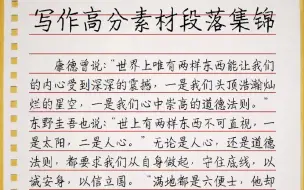 写作高分素材段落集锦
康德曾说:“世界上唯有两样东西能让我们
的内心受到深深的震撼,一是我们头顶浩瀚灿
烂的星空,一是我们心中崇高的道德法则。”
东野圭吾也说:“世上有两样东西不可直视,一
是太阳,二是人心。”无论是人心,还是道德
法则,都要求我们从自身做起,守住底线,以
诚安身,以信立国。 “满地都是六便士,他却